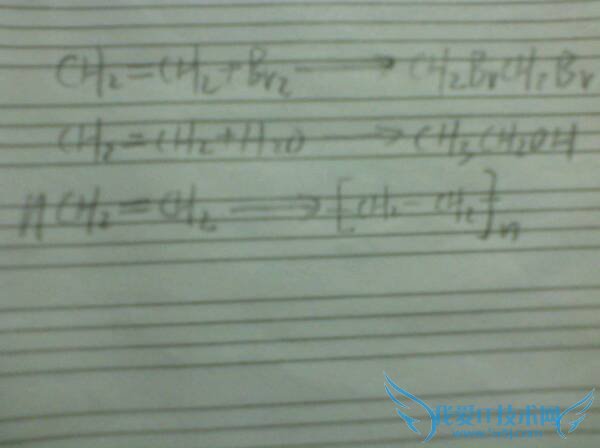 CH2=CH2+Br2 → CH2BrCH2Br
CH2=CH2+H2O → CH3CH2OH
nCH2=CH2 → [CH2-CH2]n
我爱IT技术网